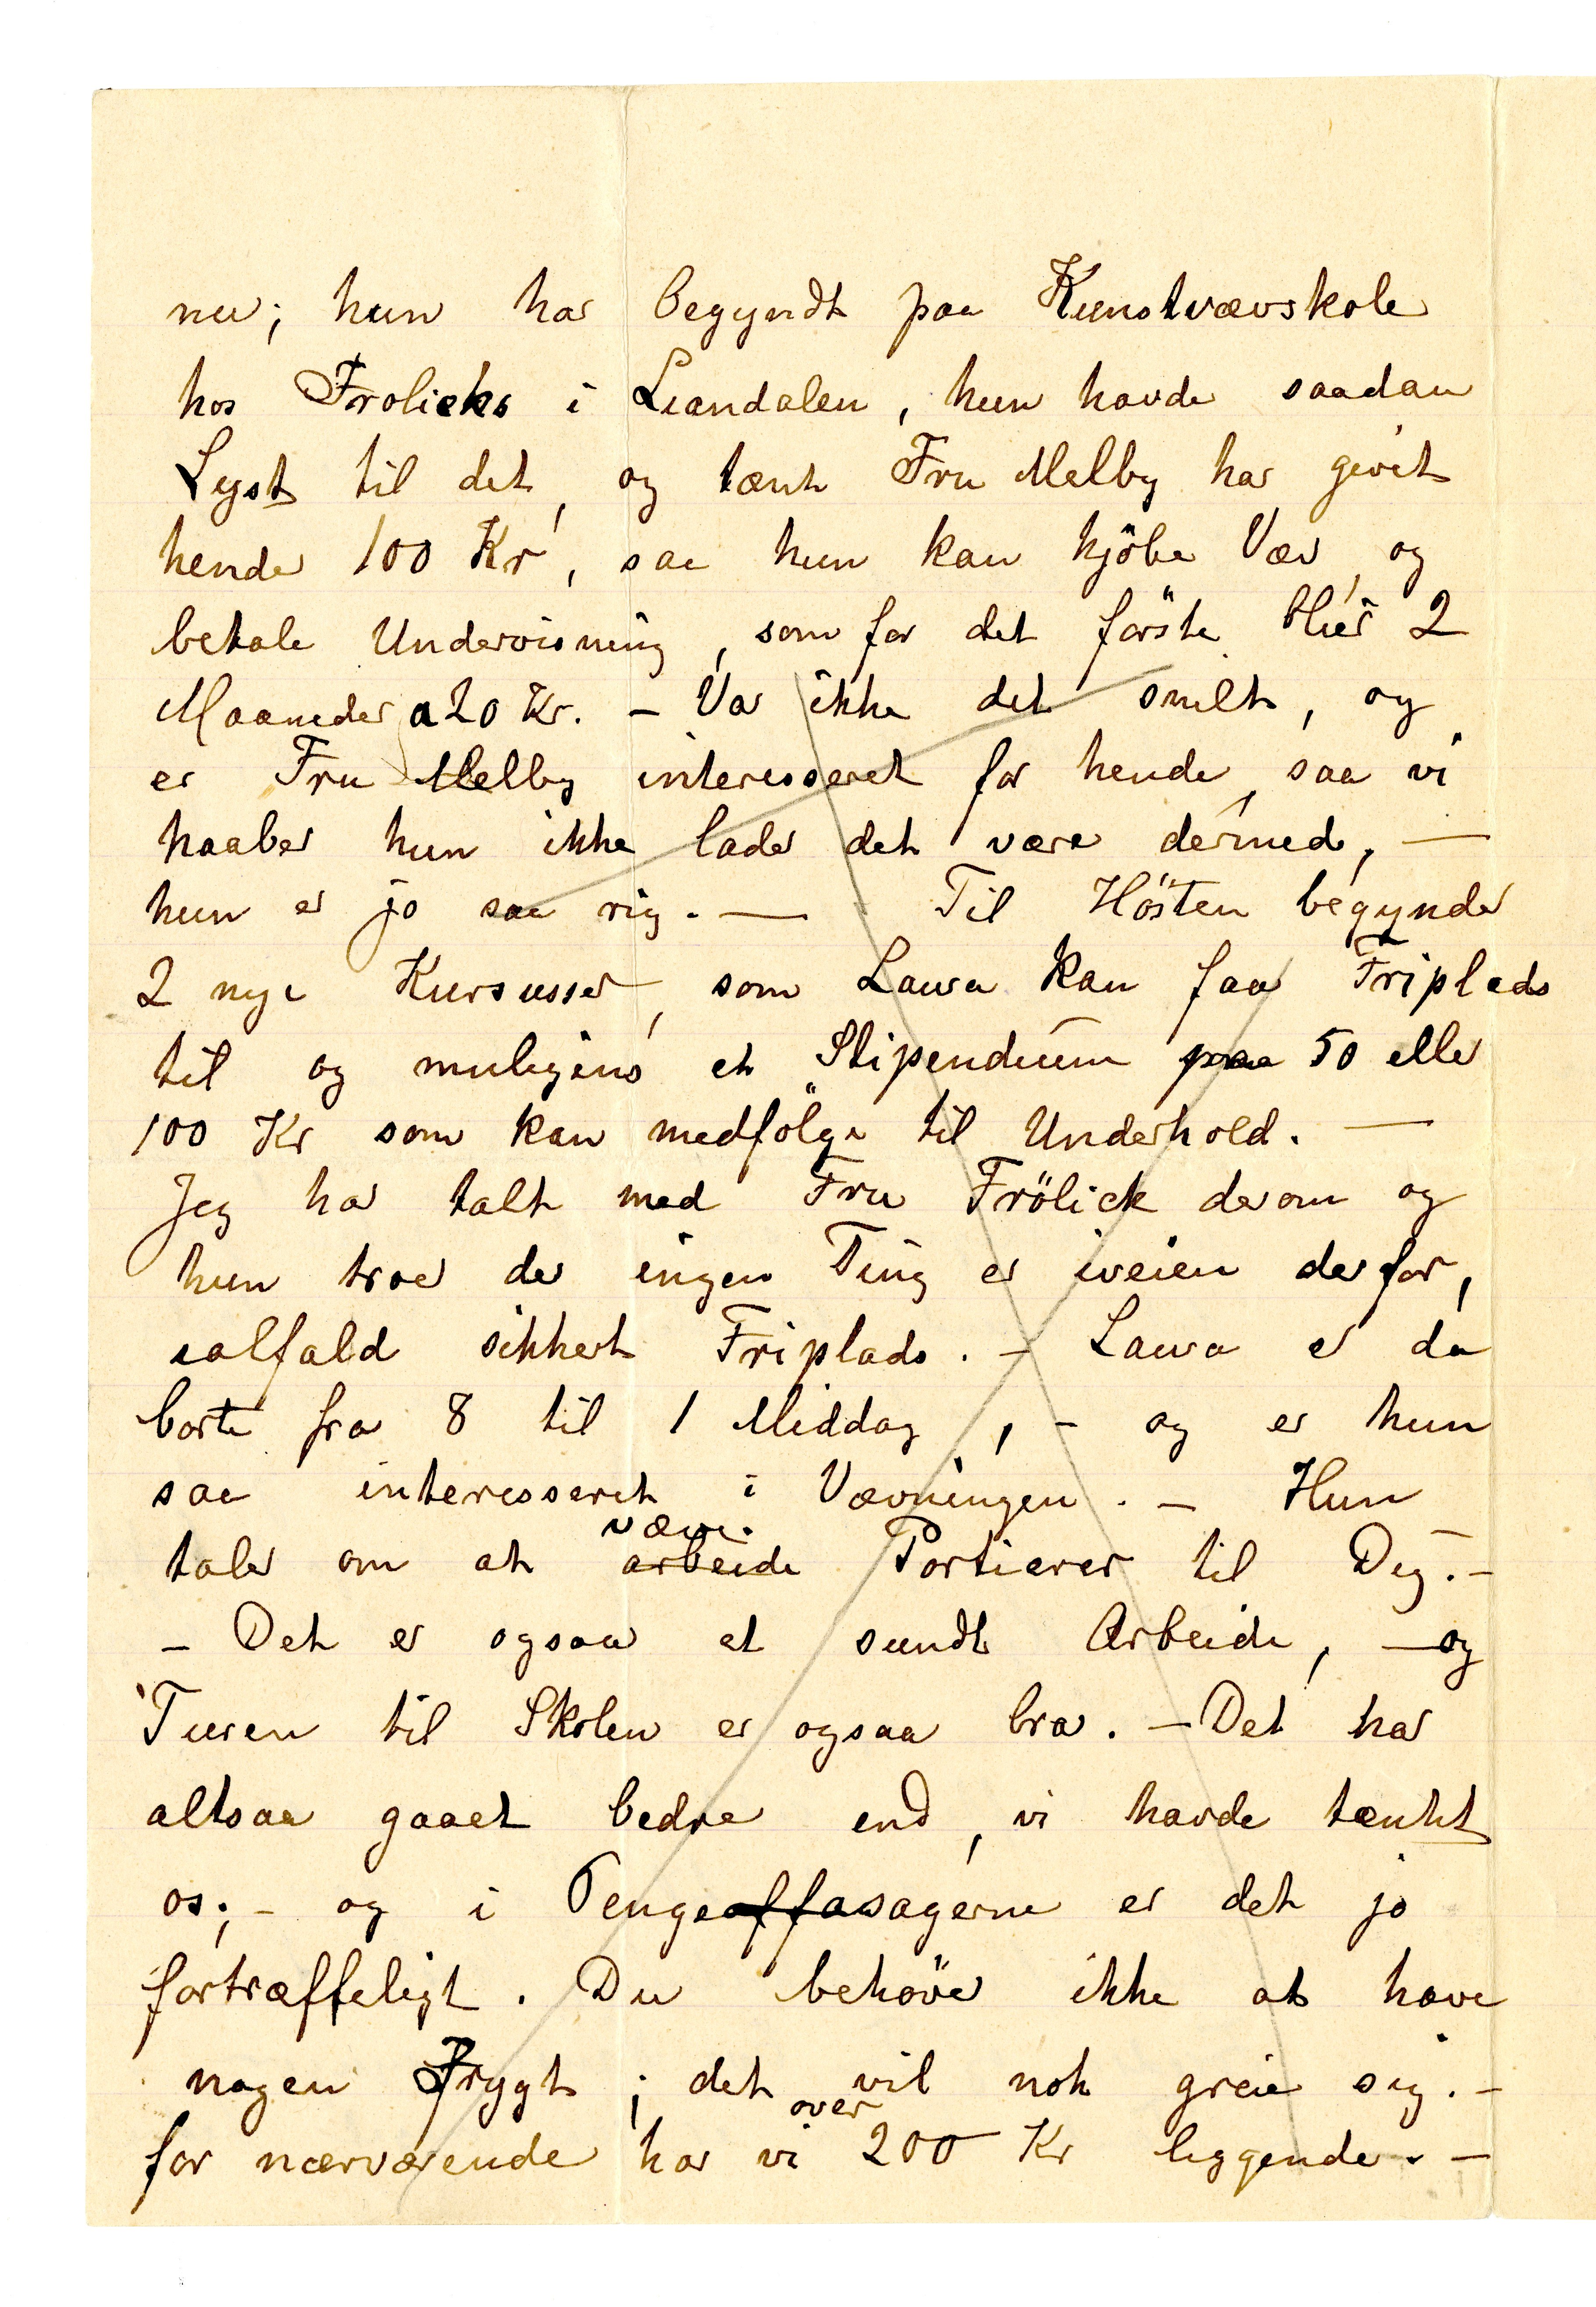 nu; hun har begyndt paa Kunstvævskole
hos Frolicks i Liandalen, hun havde saadan
Lyst til det, og tænk Fru Melby har givet
hende 100 Kr, saa hun kan kjöbe Væv, og
betale Undervisning, som for det förste blier 2
Maaneder a 20 Kr. – Var ikke det snilt, og
er Fru Melby interesseret for hende, saa vi
haaber hun ikke lader det være dermed, —
hun er jo saa rig. — Til Hösten begynder
2 nye Kursusser, som Laura kan faa Friplads
til og muligens et Stipendium paa 50 eller
100 Kr som kan medfölge til Underhold. —
Jeg har talt med Fru Frölick derom og
hun troer der ingen Ting er iveien derfor,
ialfald sikkert Friplads. – Laura er da
borte fra 8 til 1 Middag, – og er hun
saa interesseret i Vævningen. – Hun
væve.
taler om at arbeide Portierer til Dig. –
– Det er ogsaa et sundt Arbeide, – og
Turen til Skolen er ogsaa bra. – Det har
altsaa gaaet bedre end, vi havde tænkt
os; – og i Pengeaffasagerne er det jo
fortræffeligt. Du behöver ikke at have
nogen Frygt; det vil nok greie sig. –
over
for nærværende har vi 200 Kr liggende. –